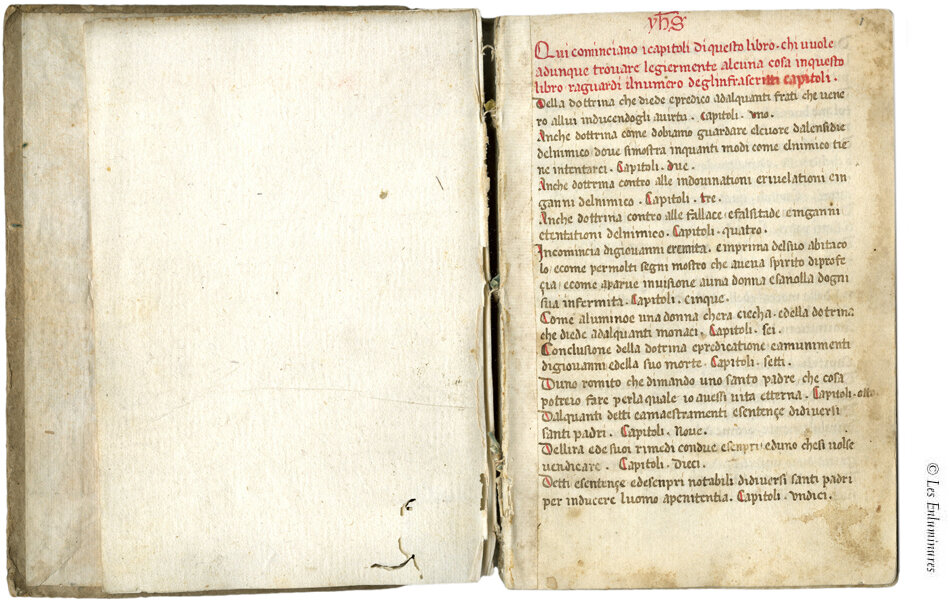 yhs
Qui cominciano icapitoli di questo libro. chi vuole
adunque trouare legiermente alcuna cosa inquesto
libro raguardi ilnumero deglinfrascritti capitoli.
Della dottrina che diede epredico adalquanti frati che uene
ro allui inducendogli auirtu. Capitoli. vno.
Anche dottrina come dobiamo guardare elcuore dalensidie
delnimico doue simostra inquanti modi come elnimico tie
ne intentarci. Capitoli. due.
Anche dottrina contro alle indouinationi eriuelationi ein
ganni delnimico. Capitoli. tre.
Anche dottrina contro alle fallace efalsitade einganni
etentationi delnimico. Capitoli. quatro.
Incomincia digiouanni eremita. emprima delsuo abitaco
lo ecome permolti segni mostro che auena spirito diprofe
çia ecome aparue inuisione auna donna esanolla dogni
sua infermita. Capitoli. cinque.
Come aluminoe una donna chera ciecha. edella dotrina
che diede adalquanti monaci. Capitoli. sei.
Conclusione della dotrina epredicatione eamunimenti
digiouanni edella suo morte. Capitoli. setti.
Duno romito che dimando uno santo padre che cosa
potreio fare perla quale io auessi vita etterna. Capitoli. otto.
Dalquanti detti eamaestramenti esentençe didiuersi
santi padri. Capitoli. Noue.
Dellira ede suoi rimedi condue esenpri eduno chesi uolse
uendicare. Capitoli. Dieci.
Detti esentençe edesenpri notabili didiuersi santi padri
per inducere luomo apenitentia. Capitoli. vndici.
© Les Enluminures